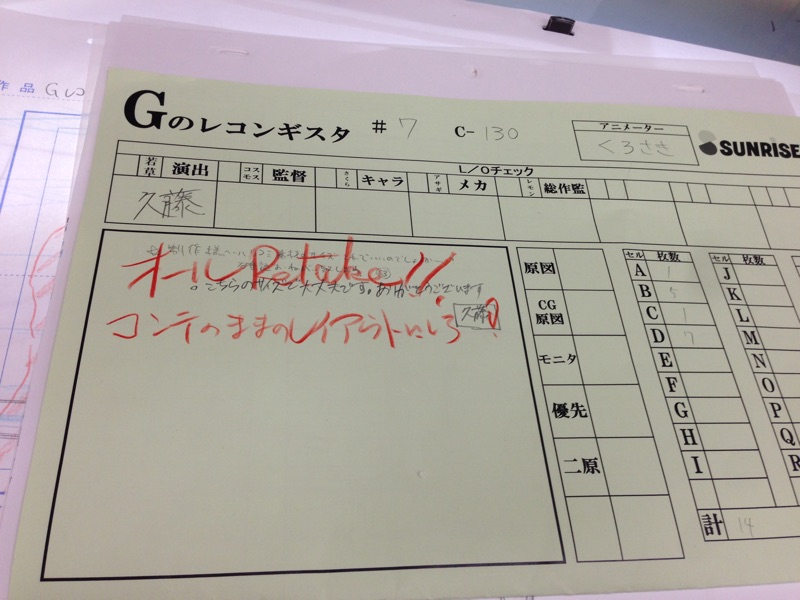 作品 Gレコ
Gのレコンギスタ #7 C-130
アニメーター
くろさき
SUNRISE
L/Oチェック
若草 演出 コスモス 監督 さくら キャラ アサギ メカ レモン 総作監
久藤
オールRetake!!
。こちらのサイズで大丈夫です。ありがとうございます
コンテのままのレイアウトにしろ
久藤
原図
CG原図
モニタ
優先
二原
セル 枚数 セル 枚数
A 1 J
B 5 K
C 1 L
D 7 M
E N
F O
G P
H Q
I R
計 14